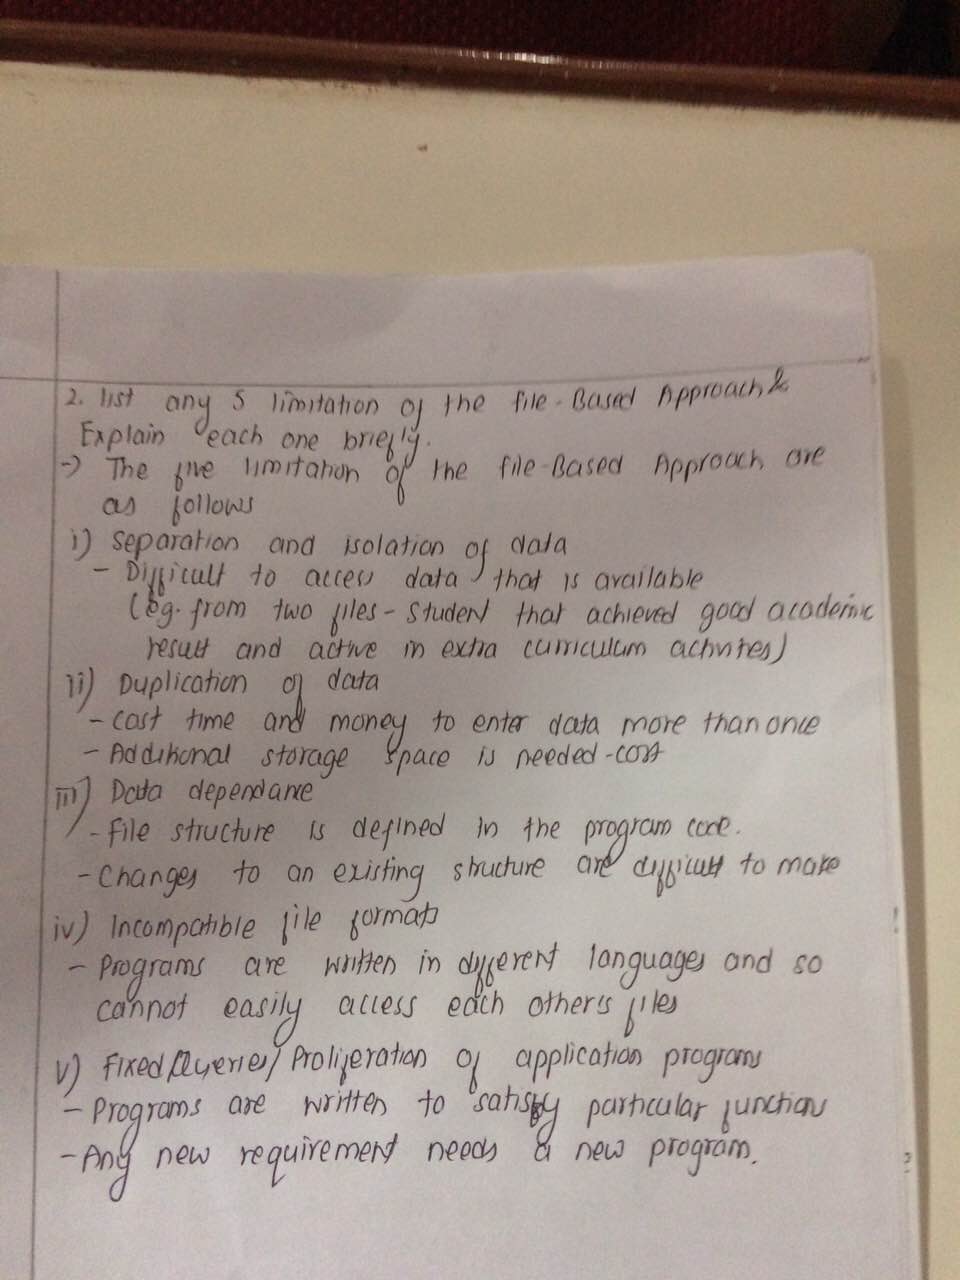 2. list any 5 limitation of the file-Based Approach &
Explain each one briefly.
-> The five limitation of the file-Based Approach are
as follows
i) Separation and isolation of data
- Difficult to access data that is available
(eg. from two files - student that achieved good academic
result and active in extra curriculum activites)
ii) Duplication of data
- cost time and money to enter data more than once
- Additional storage space is needed - cost
iii) Data dependance
- File structure is defined in the program code.
- Changes to an existing structure are difficult to make
iv) Incompatible file formats
- Programs are written in different languages and so
cannot easily access each other's files
v) Fixed Queries/Proliferation of application programs
- Programs are written to satisfy particular functions
- Any new requirement needs a new program.